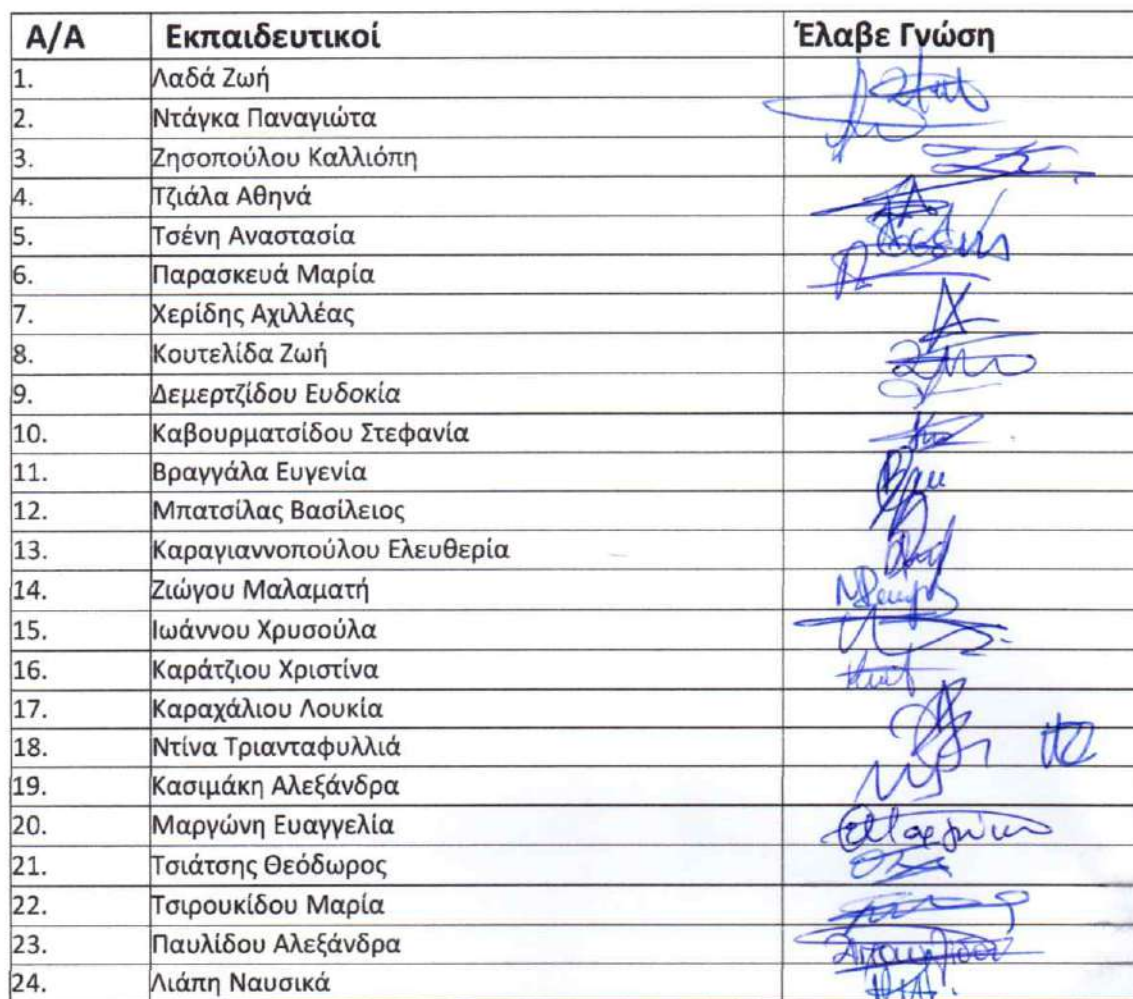 Α/Α Εκπαιδευτικοί Έλαβε Γνώση
1. Λαδά Ζωή
2. Ντάγκα Παναγιώτα
3. Ζησοπούλου Καλλιόπη
4. Τζιάλα Αθηνά
5. Τσένη Αναστασία
6. Παρασκευά Μαρία
7. Χερίδης Αχιλλέας
8. Κουτελίδα Ζωή
9. Δεμερτζίδου Ευδοκία
10. Καβουρματσίδου Στεφανία
11. Βραγγάλα Ευγενία
12. Μπατσίλας Βασίλειος
13. Καραγιαννοπούλου Ελευθερία
14. Ζιώγου Μαλαματή
15. Ιωάννου Χρυσούλα
16. Καράτζιου Χριστίνα
17. Καραχάλιου Λουκία
18. Ντίνα Τριανταφυλλιά
19. Κασιμάκη Αλεξάνδρα
20. Μαργώνη Ευαγγελία
21. Τσιάτσης Θεόδωρος
22. Τσιρουκίδου Μαρία
23. Παυλίδου Αλεξάνδρα
24. Λιάπη Ναυσικά